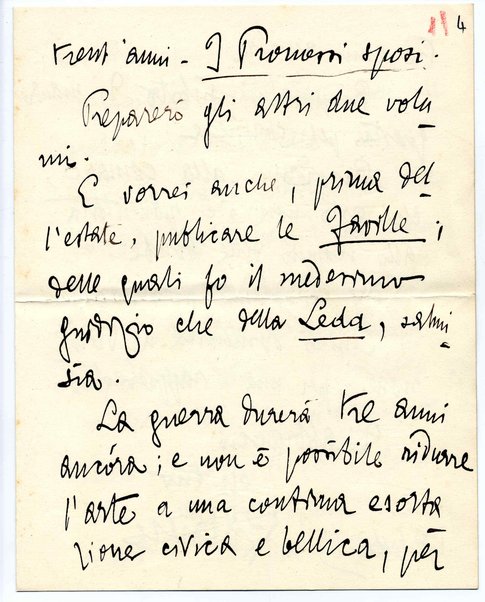 4
trent'anni - I Promessi sposi.
Preparerò gli altri due volu
mi.
E vorrei anche, prima del
l'estate, publicare le Faville;
delle quali fo il medesimo
giudizio che della Leda, salmi
sia.
La guerra durerà tre anni
ancóra; e non è possibile ridurre
l'arte a una continua esorta
zione civica e bellica, per